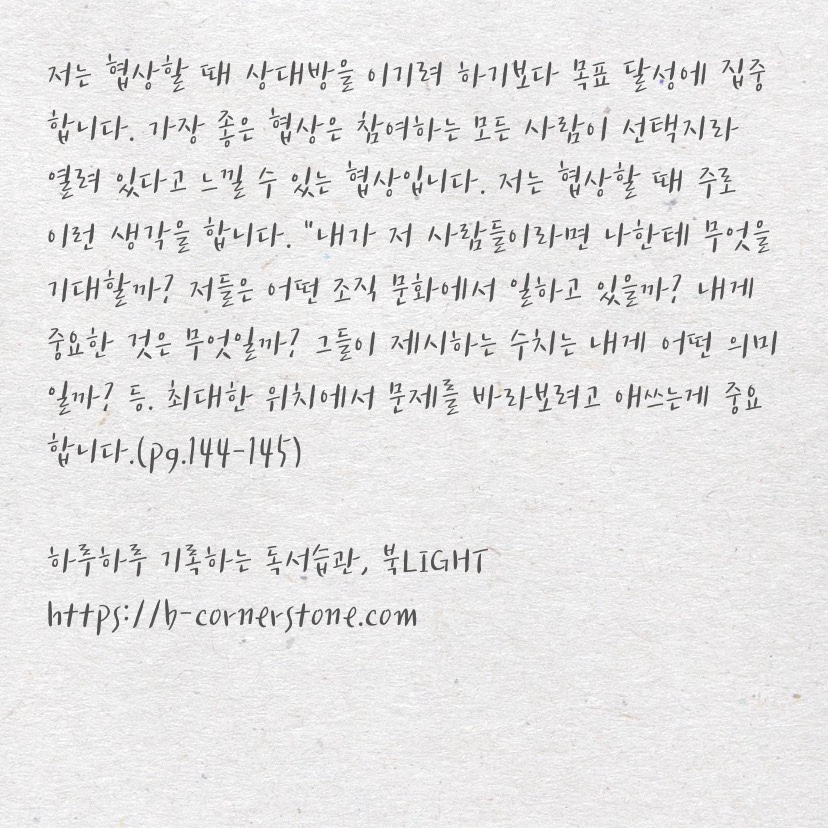 저는 협상할 때 상대방을 이기려 하기보다 목표 달성에 집중
합니다. 가장 좋은 협상은 참여하는 모든 사람이 선택지라
열려 있다고 느낄 수 있는 협상입니다. 저는 협상할 때 주로
이런 생각을 합니다. "내가 저 사람들이라면 나한테 무엇을
기대할까? 저들은 어떤 조직 문화에서 일하고 있을까? 내게
중요한 것은 무엇일까? 그들이 제시하는 수치는 내게 어떤 의미
일까? 등. 최대한 위치에서 문제를 바라보려고 애쓰는게 중요
합니다.(pg.144-145)
하루하루 기록하는 독서습관, 북LIGHT
https://b-cornerstone.com